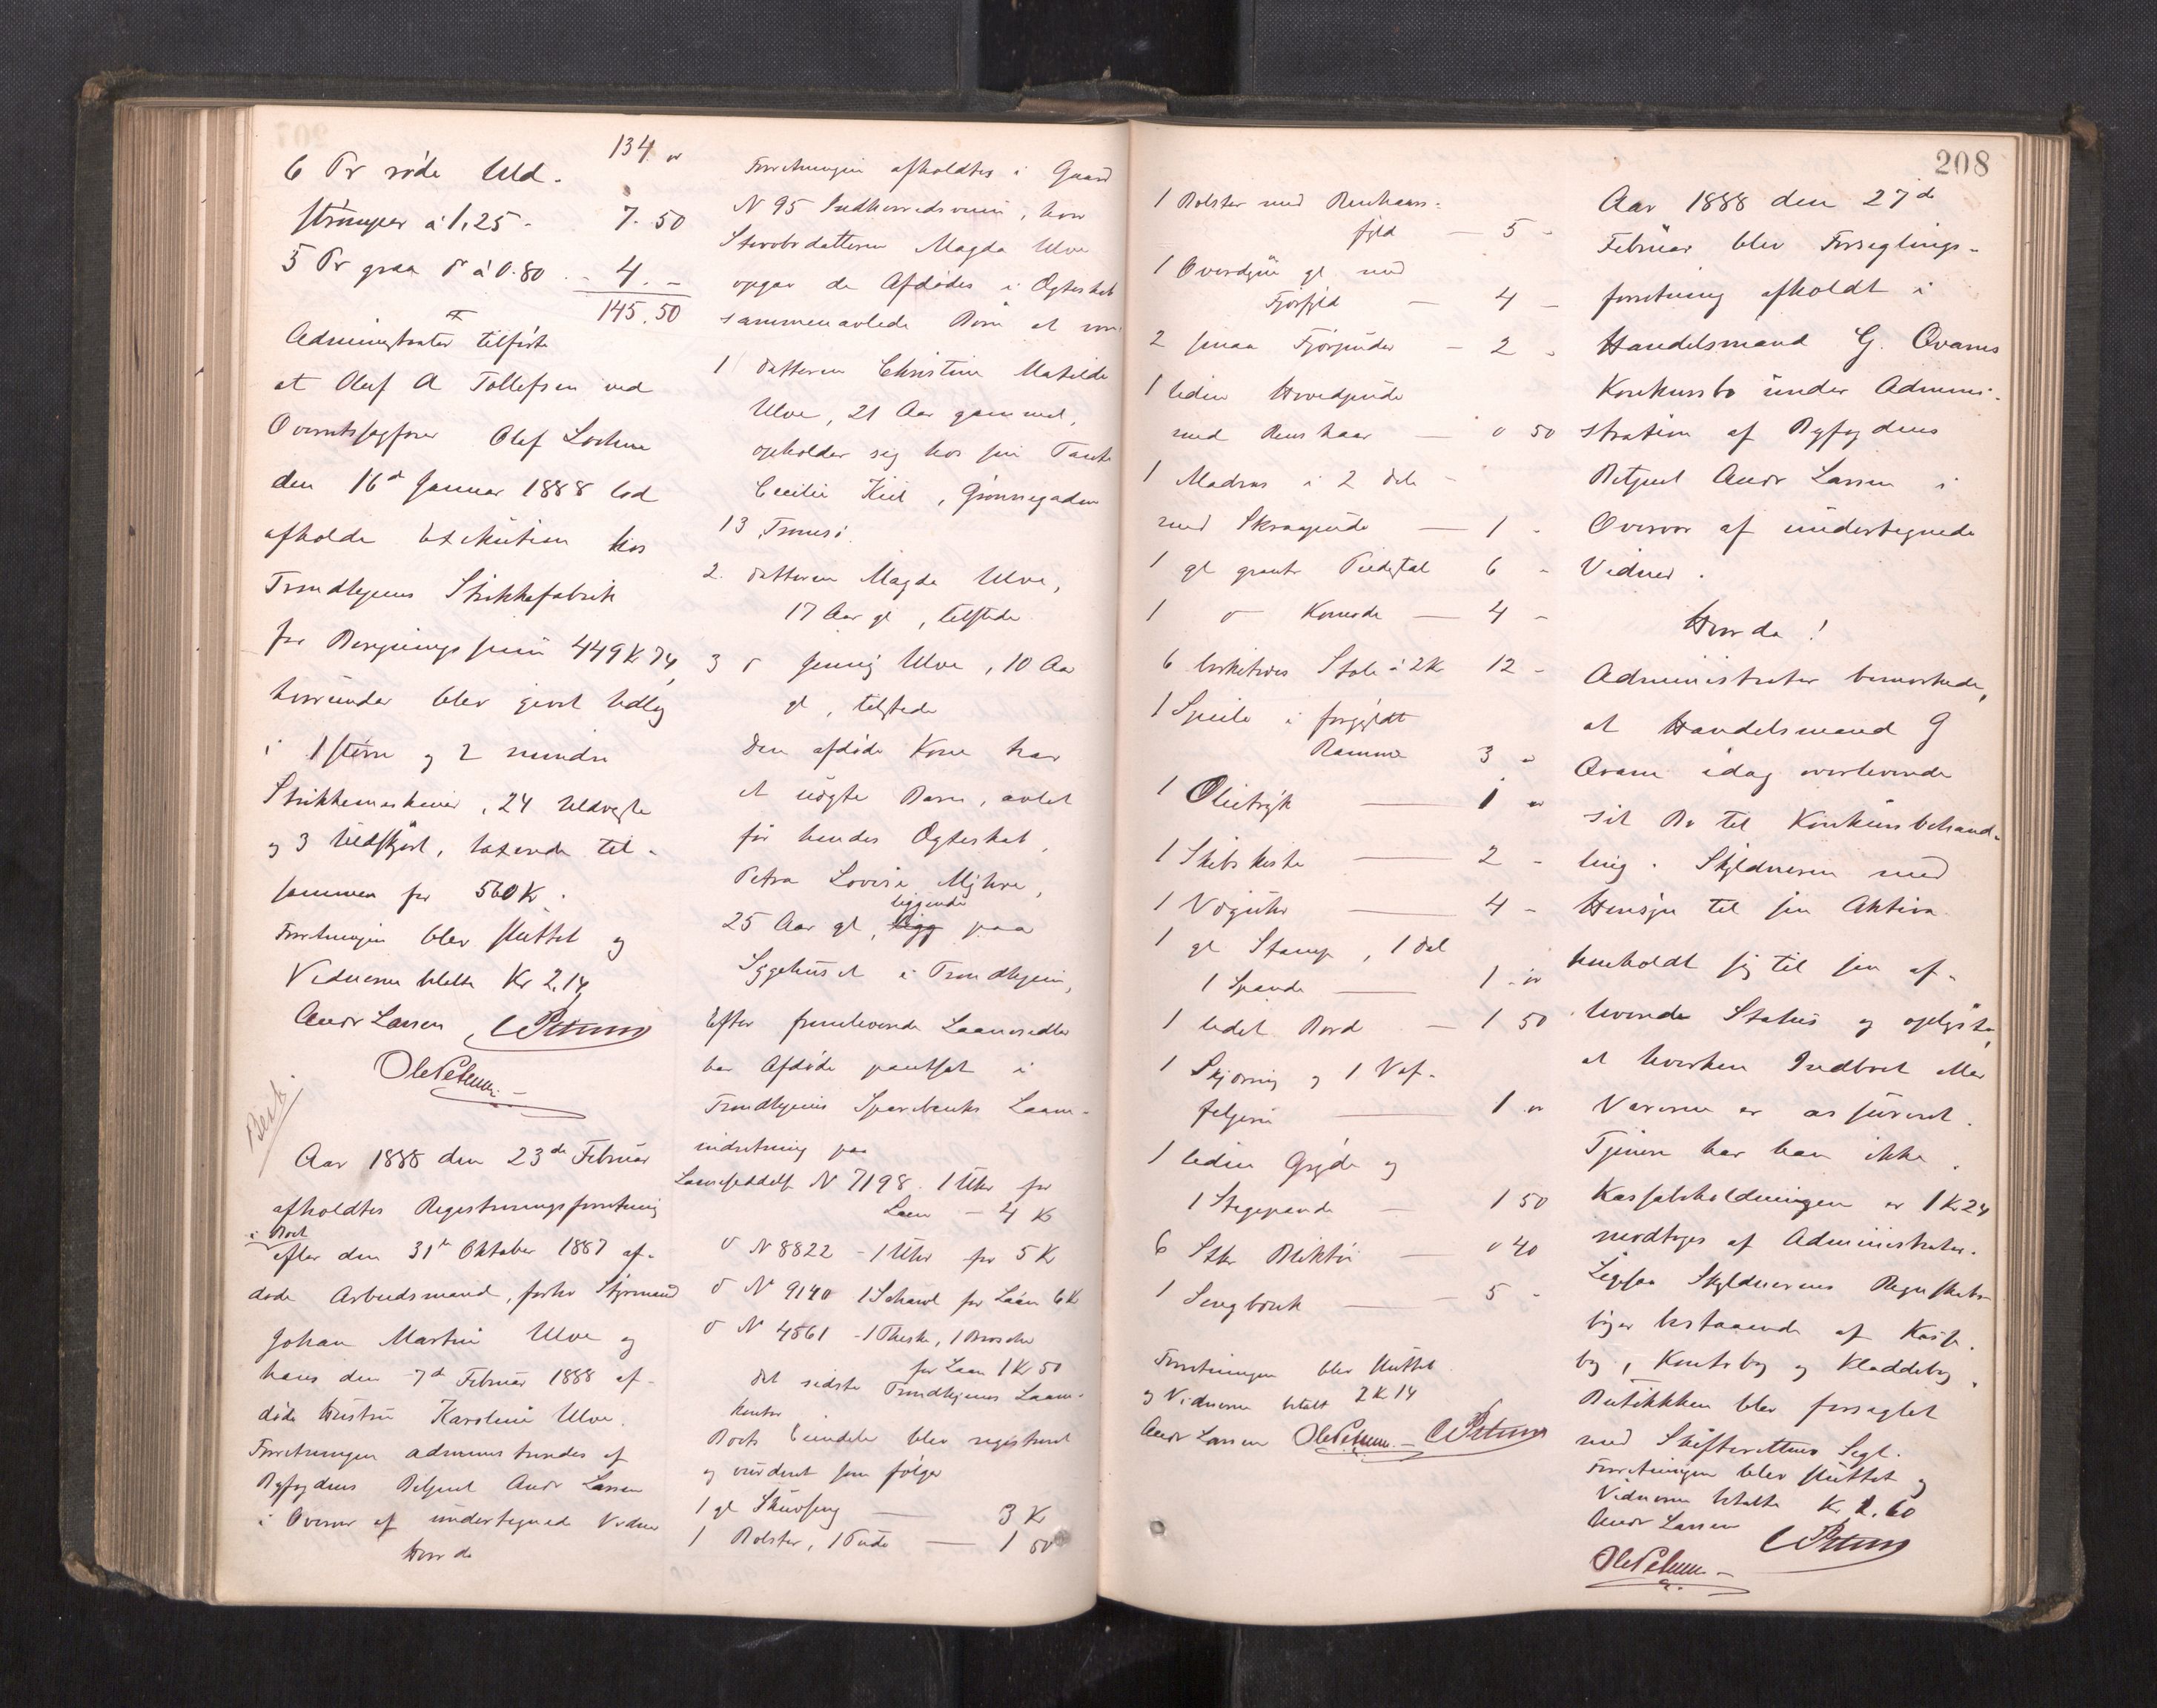 134 "
6 Pr røde Uld-
strømper à 1.25 - 7.50
5 Pr graa do à 0.80 - 4. -
145.50
Administrator tilførte
at Oluf A Tollefsen ved
Overretssagfører Olaf Lochme
den 16de Januar 1888 lod
afholde Exekution hos
Trondhjems Strikkefabrik
for Beregningssum 449 Kr 74,
hvorunder blev gjort Udlæg
i 1 større og 2 mindre
Strikkemaskiner, 24 Uldveste
og 3 Uldskjørt, taxerede til-
sammen for 560 Kr.
Forretningen blev sluttet og
Vidnerne betalte Kr 2.14
Andr Larsen C Petersen
Ole Petersen
Besk.
Aar 1888 den 23de Februar
afholdtes Registreringsforretning
i Boet
efter den 31te Oktober 1887 af-
døde Arbeidsmand, forhv Styrmand
Johan Martin Ulve og
hans den 7de Februar 1888 af-
døde Hustru Karoline Ulve.
Forretningen administreredes af
Byfogdens Betjent Andr Larsen
i Overvær af undertegnede Vidner
Hvorda
Forretningen afholdtes i Gaard
N 95 Indherredsveien, hvor
Stervbodatteren Magda Ulve
opgav de Afdødes i Ægteskab
sammenavlede Børn at være
1 Datteren Christine Mathilde
Ulve, 21 Aar gammel,
opholder sig hos sin Tante
Cecilie Kiel, Grønnegaden
13 Tromsø.
2. Datteren Magda Ulve,
17 Aar gl, tilstede
3 do Jenny Ulve, 10 Aar
gl, tilstede
Den afdøde Kone har
et uægte Barn, avlet
før hendes Ægteskab,
Petra Lovise Myhre,
liggende
25 Aar gl, ligg paa
Sygehuset i Trondhjem,
Efter fremleverede Laanesedler
har Afdøde pantsat i
Trondhjems Sparebanks Laane-
indretning paa
Laaneseddel N 7198. 1 Uhr for
Laan - 4 Kr
do N 8822 - 1 Uhr for 5 Kr
do N 9140 1 Schawl for Laan 6 Kr
do N 4561 - 1 Theske, 1 Brosche
for Laan 1 Kr 50
det sidste Trondhjems Laane-
kontor
Boets Eiendele blev registreret
og vurderet som følger
1 gl Skuvseng - 3 Kr
1 Bolster, 1 Pude - 1 50
208
1 Bolster med Renhaars-
fyld - 5 -
1 Overdyne gl med
Fjørfyld - 4 -
2 smaa Fjørpuder - 2 -
1 liden Hovedpude
med Renshaar - 0 50
1 Madras i 2 Dele
med Skraapude - 1 -
1 gl graat Piedestal 6 -
1 do Komode - 4 -
6 birketræs Stole à 2 Kr 12 -
1 Speile i forgyldt
Ramme 3 "
1 Olietryk - 1 "
1 Skibskiste - 2 -
1 Væguhr - 4 -
1 gl Stamp, 1 Dal
1 Spande - 1 - "
1 lidet Bord - 1 50
1 Skjæring og 1 Vaf-
feljern - 1 "
1 liden Gryde og
1 Stegepande - 1 50
6 Stkr Bliktøi - 0 40
1 Sengbænk - 5 -
Forretningen blev sluttet
og Vidnerne betalt 2 Kr 14
Andr Larsen Ole Petersen - C Petersen
Aar 1888 den 27de
Februar blev Forseglings-
forretning afholdt i
Handelsmand G. Qvams
Konkursbo under Admini-
stration af Byfogdens
Betjent Andr Larsen i
Overvær af undertegnede
Vidner.
Hvorda!
Administrator bemærkede,
at Handelsmand G
Qvam idag overleverede
sit Bo til Konkursbehand-
ling. Skyldneren med
Hensyn til sin Aktiva
henholdt sig til sin af-
leverede Status og oplyste,
at hverken Indboet eller
Varerne er assureret.
Tjenere har han ikke.
Kassabeholdningen er 1 Kr 24
modtoges af Administrator.
Ligesaa Skyldnerens Regnskabs-
bøger bestaaende af Kasse-
bog, Kontobog og Kladdebog,
Butikken blev forseglet
med Skifterettens Segl.
Forretningen blev sluttet og
Vidnerne betalte Kr 1.60
Andr Larsen
C Petersen
Ole Petersen -